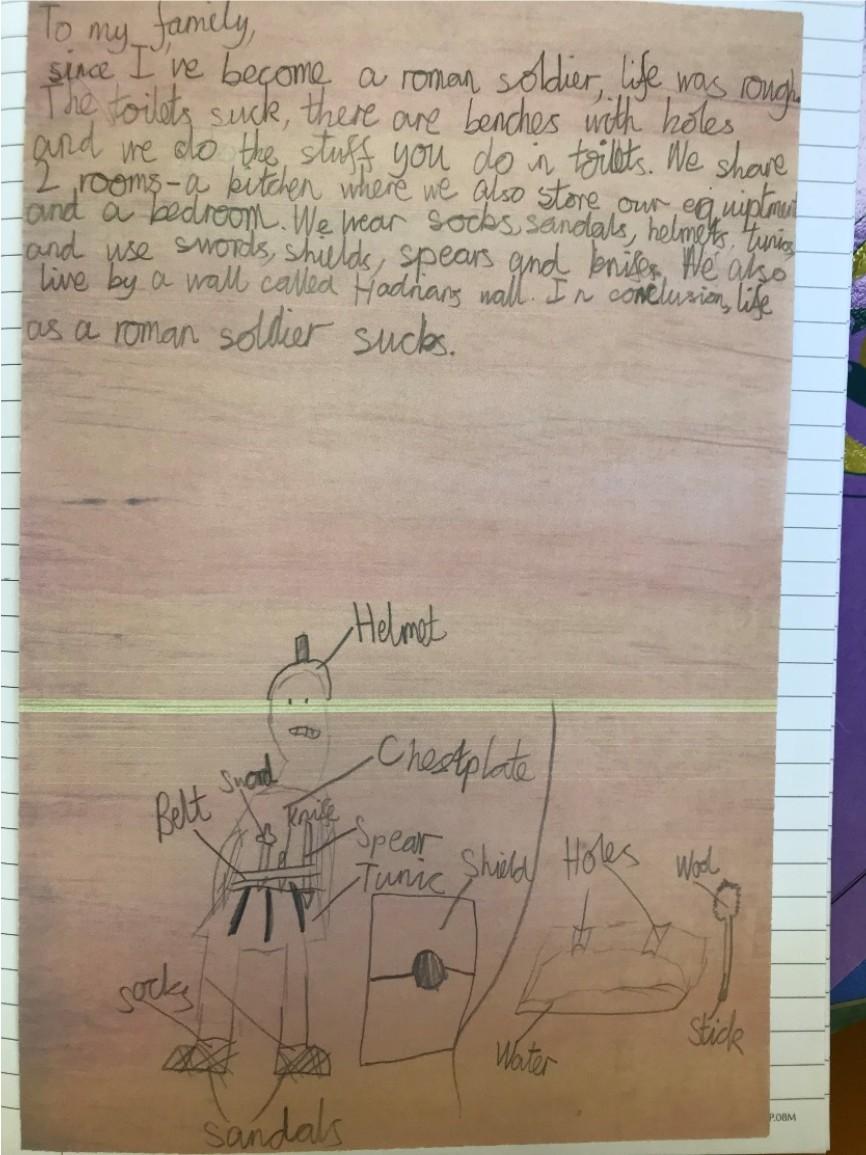 To my famely,
since I've become a roman soldier, life was rough.
The toilets suck, there are benches with holes
and we do the stuff you do in toilets. We share
2 rooms-a kitchen where we also store our equiptment
and a bedroom. We wear socks, sandals, helmets, tunics
and use swords, shields, spears and knifes. We also
live by a wall called Hadrians wall. In conclusion, life
as a roman soldier sucks.
Helmet
Chestplate
Sword
Belt
Knife
Spear
Tunic
Shield
Holes
Wool
Socks
Stick
Water
Sandals
P.08M